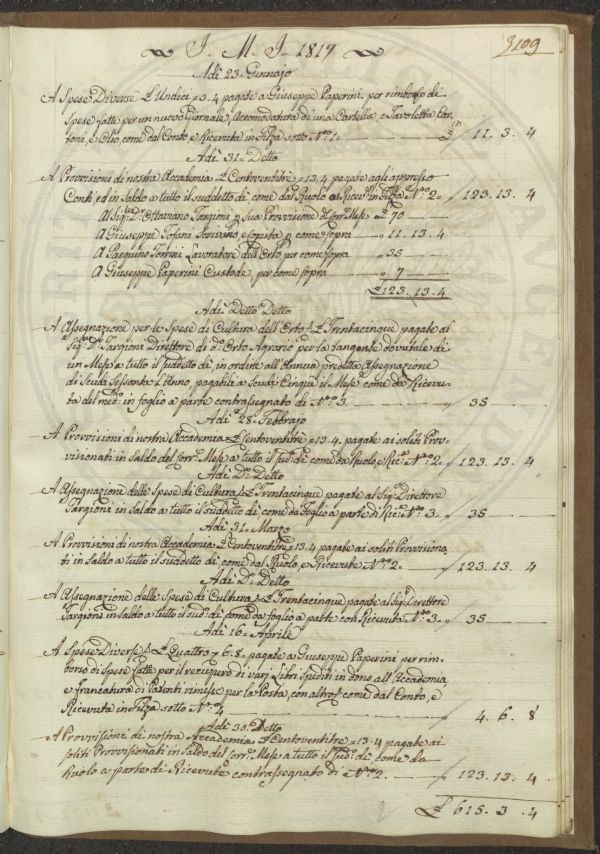 J. M. J. 1817
109
Adì 23. Gennajo
A Spese Diverse £ Undici = 3.4 pagate a Giuseppe Paperini per rimborso di
Spese fatte per un nuovo Giornale, Accomodatura di una Cartella, e Tavoletta, Car-
toni, e Olio, come dal Conto, e Ricevuta in Filza sotto N.º 1. £ 11. 3. 4
Adì 31. Detto
A Provvisioni di nostra Accademia £ Centoventitre = 13.4 pagate agli appresso
Conti ed in Saldo a tutto il suddetto dì come dal Ruolo, e Ricev. in Filza N.º 2 „ 123. 13. 4
Al Sig. D. Ottaviano Targioni p sua Provvisione del corr. Mese £ 70
A Giuseppe Tofani Scrivano, e copista p come sopra „ 11. 13. 4
A Pasquino Tomini Lavoratore dell'Orto per come sopra „ 35
A Giuseppe Paperini Custode per come sopra „ 7
£ 123. 13. 4
Adì Detto Detto
A Assegnazione per le Spese di Cultura dell'Orto £ Trentacinque pagate al
Sig. D. Targioni Direttore di d. Orto Agrario per la tangente dovutale di
un Mese a tutto il suddetto dì, in ordine all'Annua predetta Assegnazione
di Scudi Sessanta l'Anno, pagabili a Scudi Cinque il Mese come da Ricevu-
ta del med. in foglio a parte contrassegnato di N.º 3. „ 35
Adì 28. Febbrajo
A Provvisioni di nostra Accademia £ Centoventitre = 13.4. pagate ai soliti Prov-
visionati in Saldo del corr. Mese a tutto il sud. dì come da Ruolo, e Ric. N.º 2. „ 123. 13. 4
Adì D. Detto
A Assegnazione delle Spese di Cultura £ Trentacinque pagate al Sig. Direttore
Targioni in Saldo a tutto il suddetto dì come da Foglio a parte di Ric. N.º 3. „ 35
Adì 31. Marzo
A Provvisioni di nostra Accademia £ Centoventitre = 13.4 pagate ai soliti Provvisiona
ti in Saldo a tutto il suddetto dì, come dal Ruolo, e Ricevute N.º 2. „ 123. 13. 4
Adì D. Detto
A Assegnazione delle Spese di Cultura £ Trentacinque pagate al Sig. Direttore
Targioni in Saldo a tutto il sud. dì come da foglio a parte con Ricevuta N.º 3. „ 35
Adì 16. Aprile
A Spese Diverse £ Quattro 6.8 pagate a Giuseppe Paperini per rim-
borso di Spese fatte per il recupero di varj Libri spediti in dono all'Accademia
e francatura di Patenti rimesse per la Posta, con altro come dal Conto, e
Ricevuta in Filza sotto N.º 4 „ 4. 6. 8
Adì 30. Detto
A Provvisioni di nostra Accademia £ Centoventitre = 13.4 pagate ai
soliti Provvisionati in Saldo del corr. Mese a tutto il sud. dì come da
Ruolo a parte di Ricevute contrassegnato di N.º 2. „ 123. 13. 4
£ 615. 3. 4